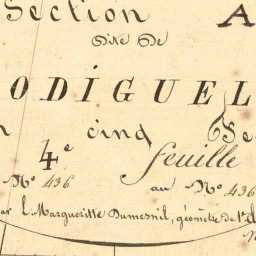 Section A
Dite De
ODIGUEL
cinq Se
4e feuille
No 436 au No 436
par L. Margueritte Dumesnil, géomètre de 1e